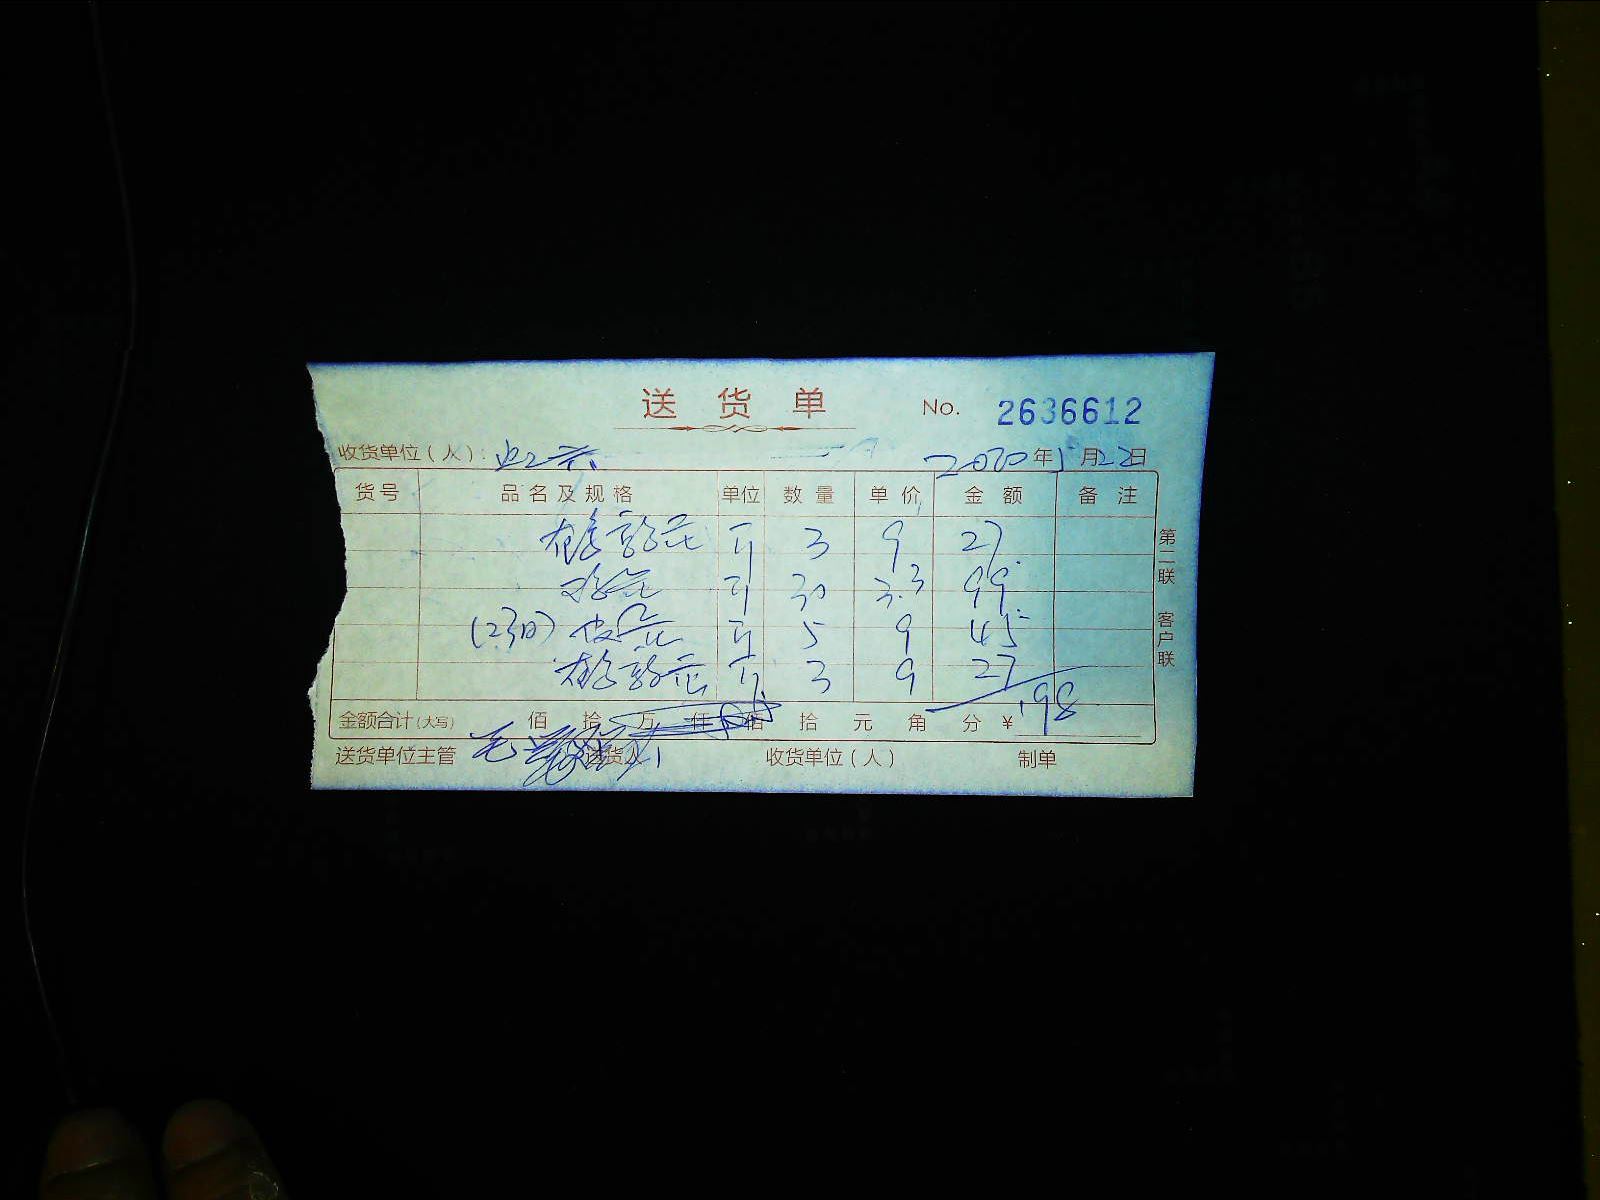 送货单 No. 2636612
收货单位(人): 2020年5月22日
货号 品名及规格 单位 数量 单价 金额 备注
斤 3 9 27
斤 30 3.3 99
(23日) 斤 5 9 45
斤 3 9 27
金额合计(大写) 佰 拾 万 仟 佰 拾 元 角 分 ¥ 198
送货单位主管 送货人 收货单位(人) 制单
第二联 客户联